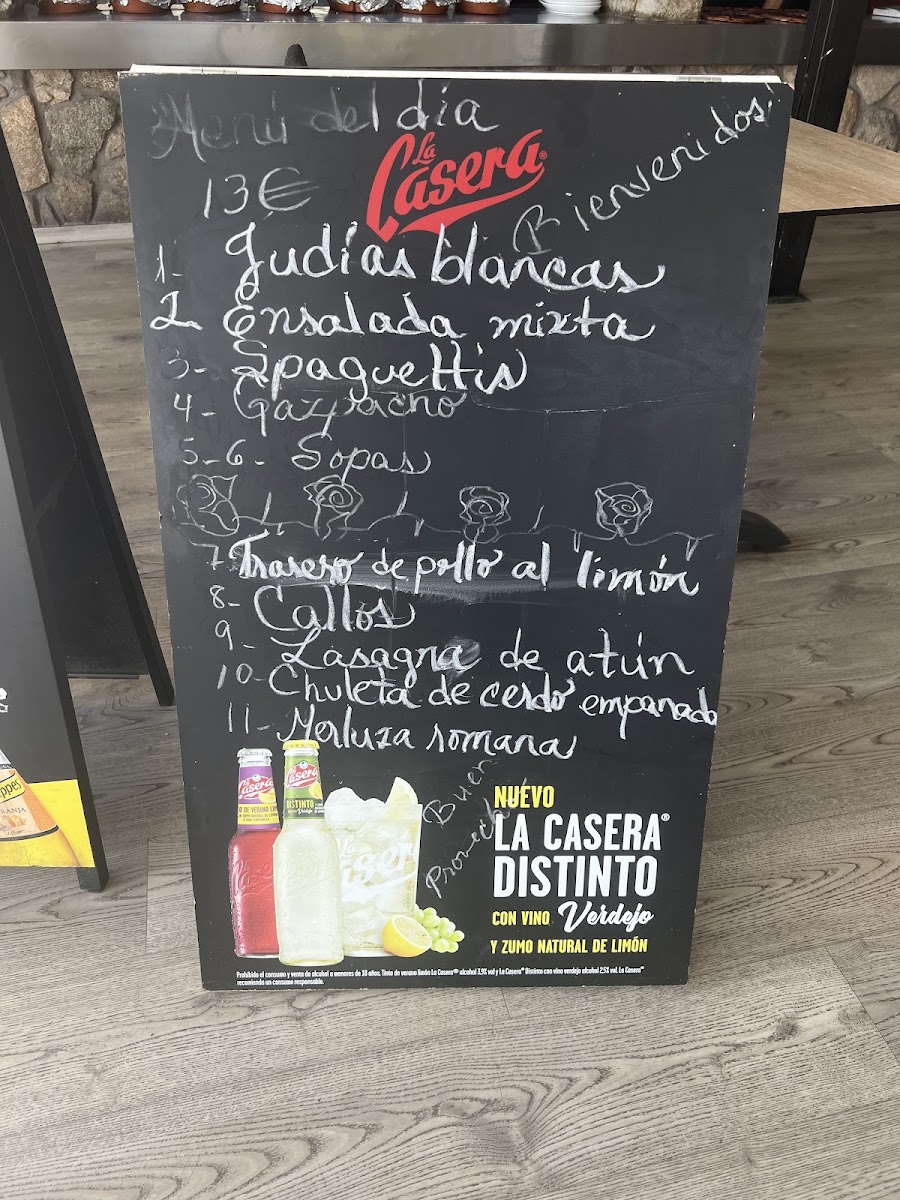 Menú del día
La Casera®
Bienvenidos!
13€
1- Judías blancas
2- Ensalada mixta
3- Spaguettis
4- Gazpacho
5-6- Sopas
7- Trasero de pollo al limón
8- Callos
9- Lasagna de atún
10- Chuleta de cerdo empanada
11- Merluza romana
Buen
provecho
NUEVO
LA CASERA®
DISTINTO
CON VINO Verdejo
Y ZUMO NATURAL DE LIMÓN
La Casera
La Casera
DISTINTO
Verdejo
La Casera
Prohibido el consumo y venta de alcohol a menores de 18 años. Tinto de verano limón La Casera® alcohol 3,9% vol y La Casera® Distinto con vino verdejo alcohol 2,5% vol. La Casera®
recomienda un consumo responsable.